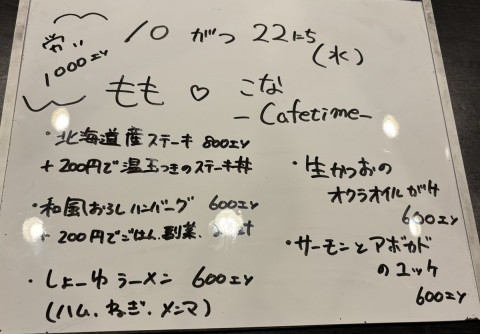 10 がつ 22にち
(水)
労い
1000エン
もも ♡ こな
- Cafetime -
・北海道産ステーキ 800エン
+ 200円で温玉つきのステーキ丼
・和風おろしハンバーグ 600エン
+ 200円でごはん、副菜、
・しょーゆラーメン 600エン
(ハム、ねぎ、メンマ)
・生かつおの
オクラオイルがけ
600エン
・サーモンとアボカド
のユッケ
600エン